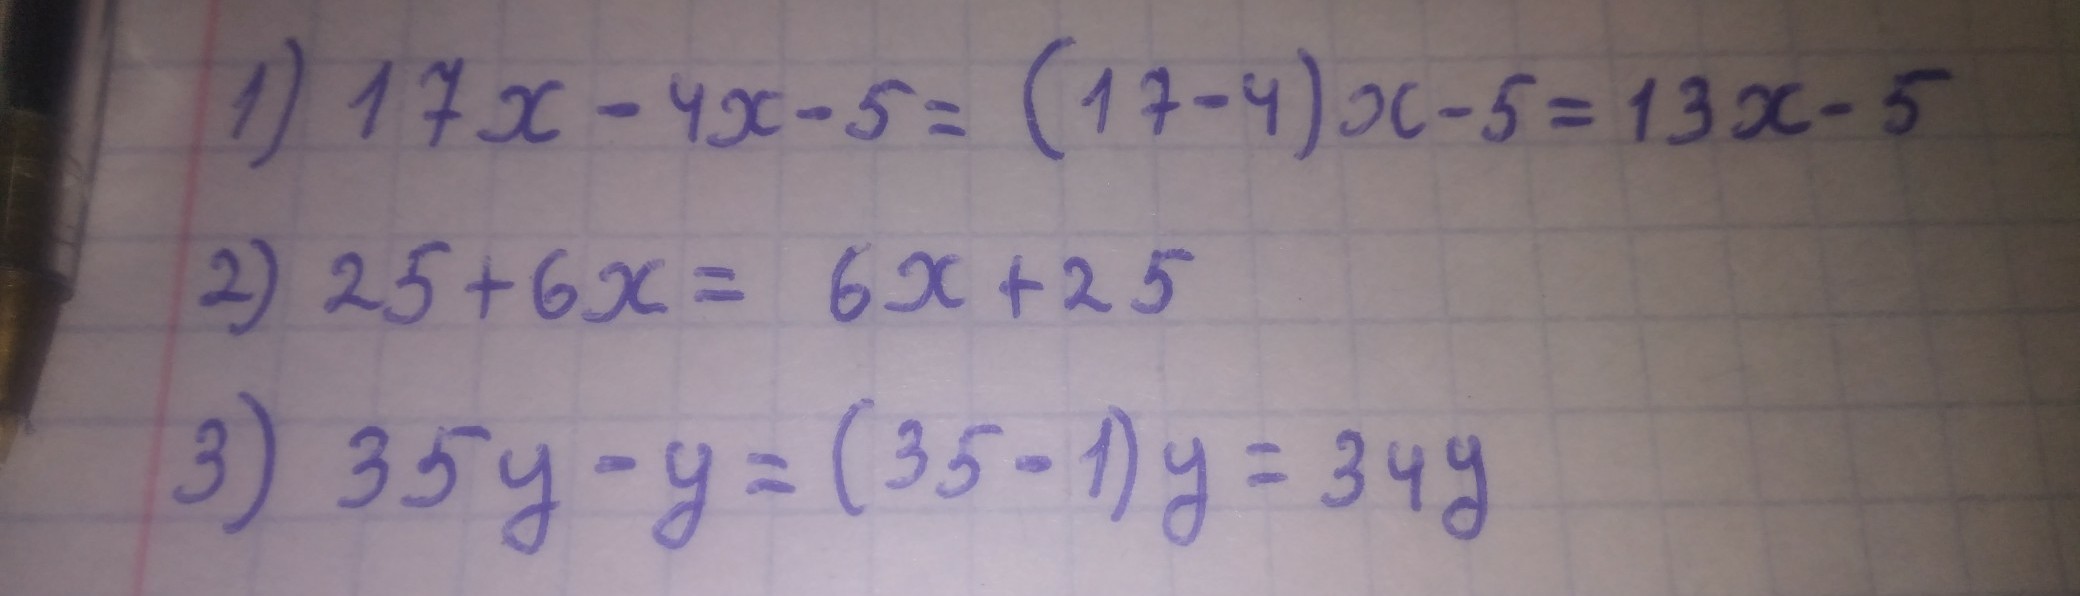 1) 17x - 4x - 5 = (17-4)x - 5 = 13x - 5
2) 25 + 6x = 6x + 25
3) 35y - y = (35 - 1)y = 34y